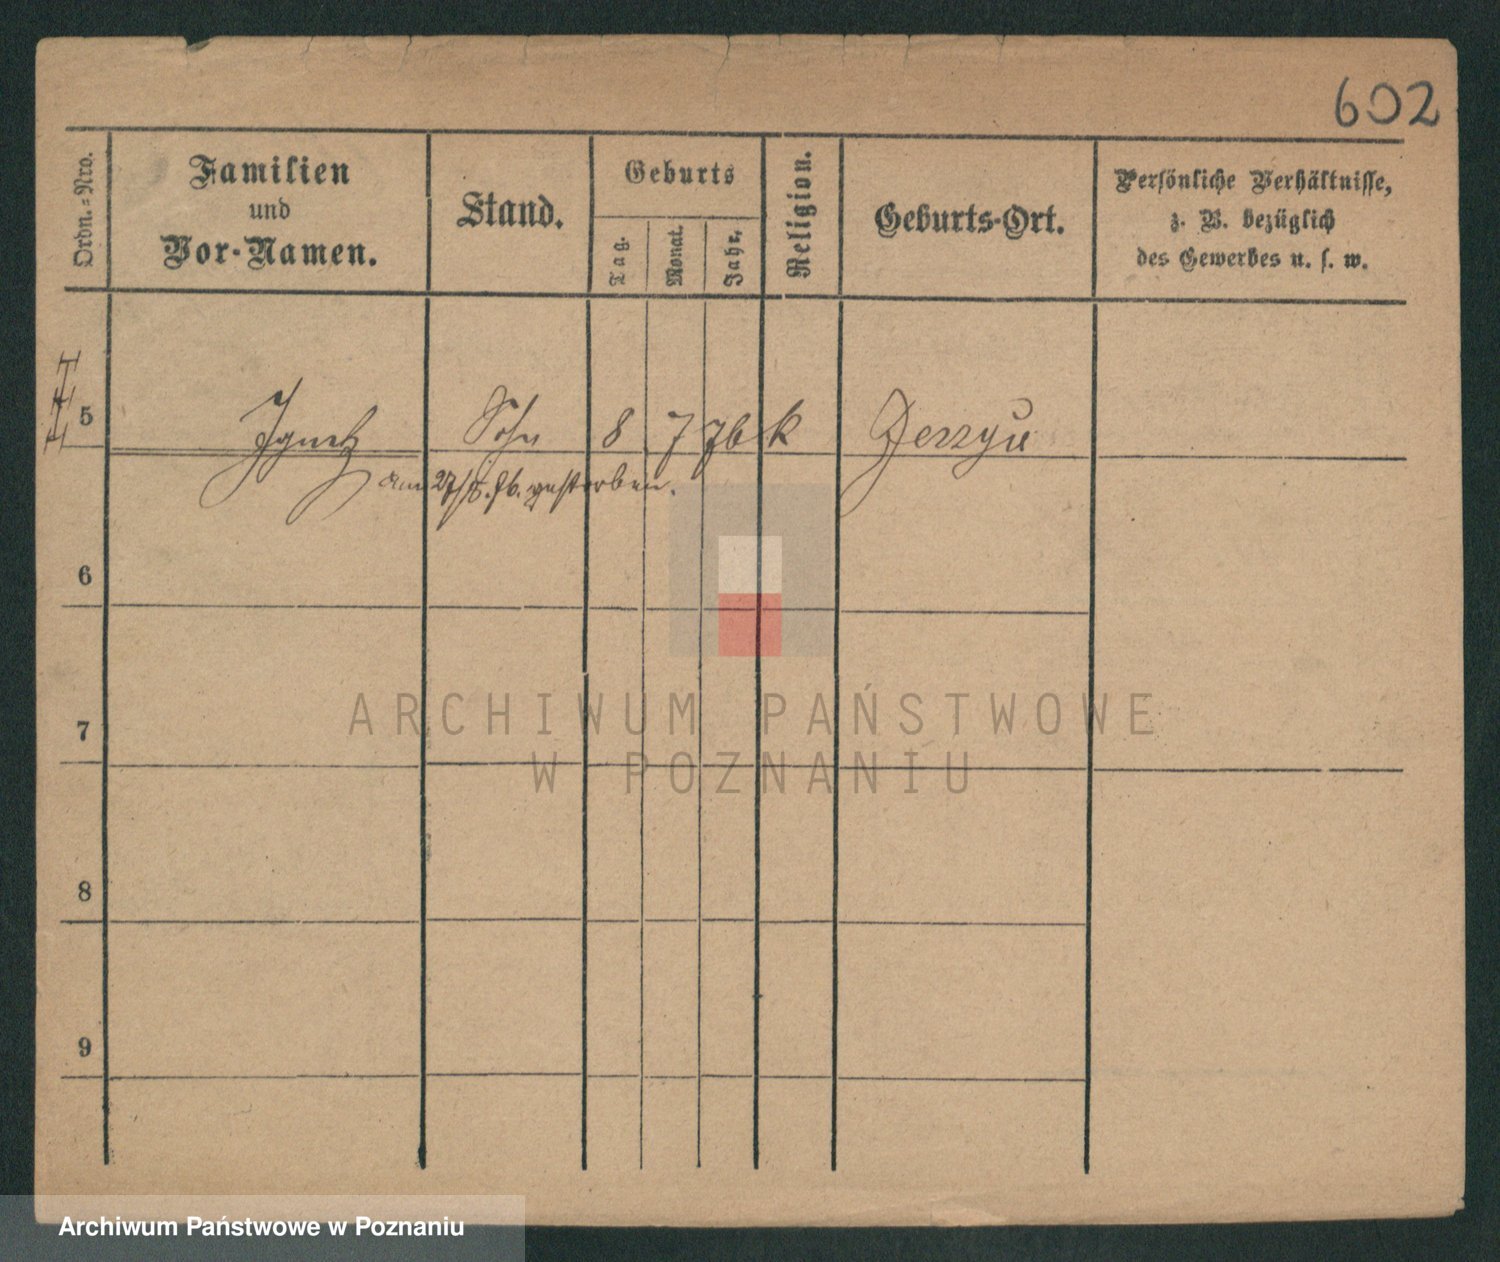 602
Ordn.=Nro.
Familien
und
Vor-Namen.
Stand.
Geburts
Tag.
Monat.
Jahr.
Religion.
Geburts-Ort.
Persönliche Verhältnisse,
z. B. bezüglich
des Gewerbes u. s. w.
5 Ignatz Sohn 8 7 76 k
am 27/ gestorben.
6
7
8
9
ARCHIWUM PAŃSTWOWE
W POZNANIU
Archiwum Państwowe w Poznaniu